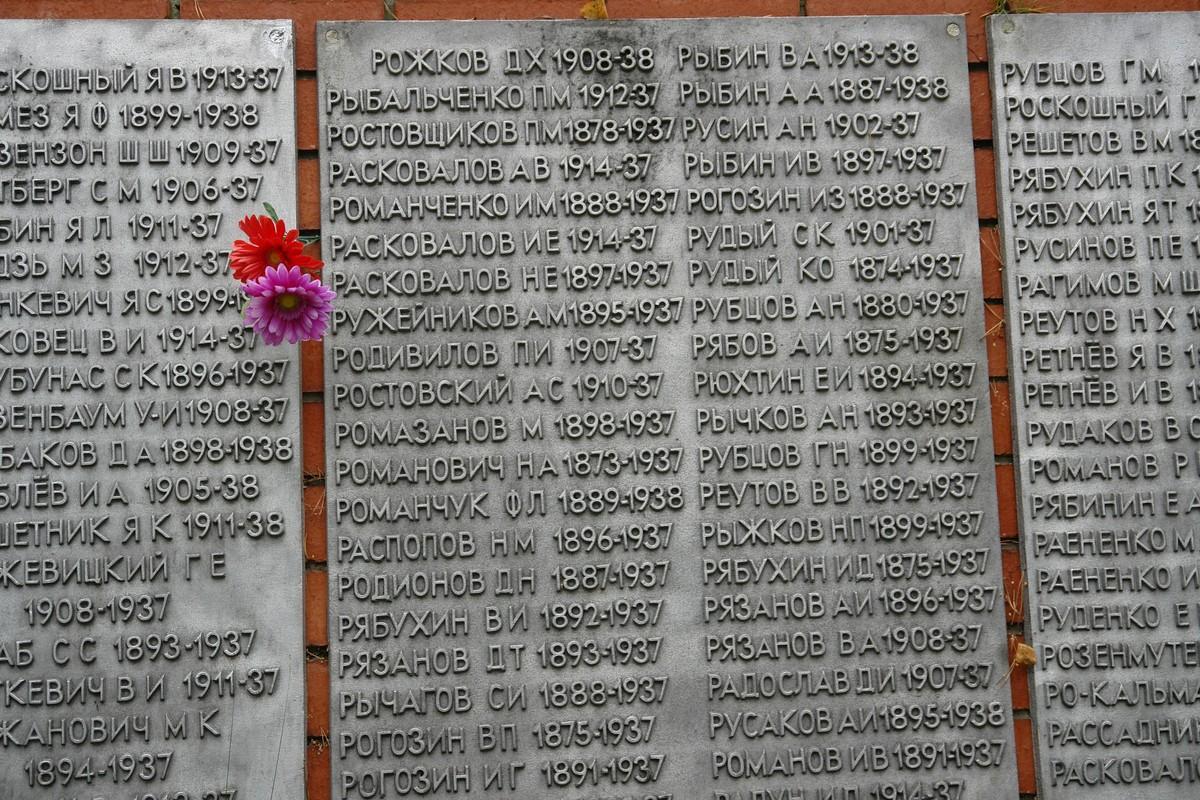 ЯВ 1913-37
Я Ф 1899-1938
Ш Ш 1909-37
С М 1906-37
Я Л 1911-37
М З 1912-37
Я С 1899-1
В И 1914-37
С К 1896-1937
У-И 1908-37
Д А 1898-1938
И А 1905-38
Я К 1911-38
Г Е
1908-1937
С С 1893-1937
В И 1911-37
М К
1894-1937
РОЖКОВ ДХ 1908-38
РЫБАЛЬЧЕНКО ПМ 1912-37
РОСТОВЩИКОВ ПМ 1878-1937
РАСКОВАЛОВ АВ 1914-37
РОМАНЧЕНКО ИМ 1888-1937
РАСКОВАЛОВ ИЕ 1914-37
РАСКОВАЛОВ НЕ 1897-1937
РУЖЕЙНИКОВ АМ 1895-1937
РОДИВИЛОВ ПИ 1907-37
РОСТОВСКИЙ АС 1910-37
РОМАЗАНОВ М 1898-1937
РОМАНОВИЧ НА 1873-1937
РОМАНЧУК ФЛ 1889-1938
РАСПОПОВ НМ 1896-1937
РОДИОНОВ ДН 1887-1937
РЯБУХИН ВИ 1892-1937
РЯЗАНОВ ДТ 1893-1937
РЫЧАГОВ СИ 1888-1937
РОГОЗИН ВП 1875-1937
РОГОЗИН ИГ 1891-1937
РЫБИН ВА 1913-38
РЫБИН АА 1887-1938
РУСИН АН 1902-37
РЫБИН ИВ 1897-1937
РОГОЗИН ИЗ 1888-1937
РУДЫЙ СК 1901-37
РУДЫЙ КО 1874-1937
РУБЦОВ АН 1880-1937
РЯБОВ АИ 1875-1937
РЮХТИН ЕИ 1894-1937
РЫЧКОВ АН 1893-1937
РУБЦОВ ГН 1899-1937
РЕУТОВ ВВ 1892-1937
РЫЖКОВ НП 1899-1937
РЯБУХИН ИД 1875-1937
РЯЗАНОВ АИ 1896-1937
РЯЗАНОВ ВА 1908-37
РАДОСЛАВ ДИ 1907-37
РУСАКОВ АИ 1895-1938
РОМАНОВ ИВ 1891-1937
РУБЦОВ ГМ
РОСКОШНЫЙ
РЕШЕТОВ ВМ
РЯБУХИН ПК
РЯБУХИН ЯТ
РУСИНОВ ПЕ
РАГИМОВ МШ
РЕУТОВ НХ
РЕТНЁВ ЯВ
РЕТНЁВ ИВ
РУДАКОВ В
РОМАНОВ
РЯБИНИН Е
РАЕНЕНКО
РАЕНЕНКО
РУДЕНКО Е